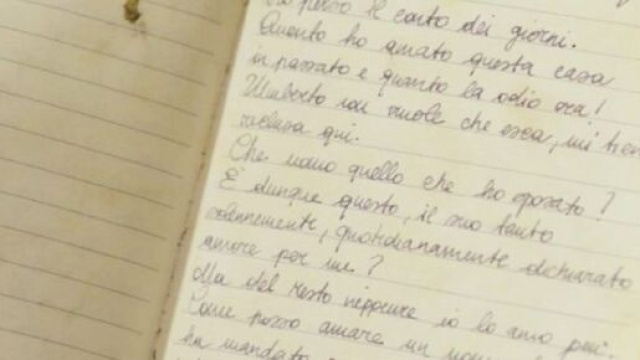 Ho perso il conto dei giorni.
Quanto ho amato questa casa
in passato e quanto la odio ora!
Umberto non vuole che esca, mi tien
reclusa qui.
Che uomo quello che ho sposato?
E' dunque questo, il suo tanto
solennemente, quotidianamente dichiarato
amore per me?
Ma del resto neppure io lo amo più.
Come posso amare un uom
ha mandato